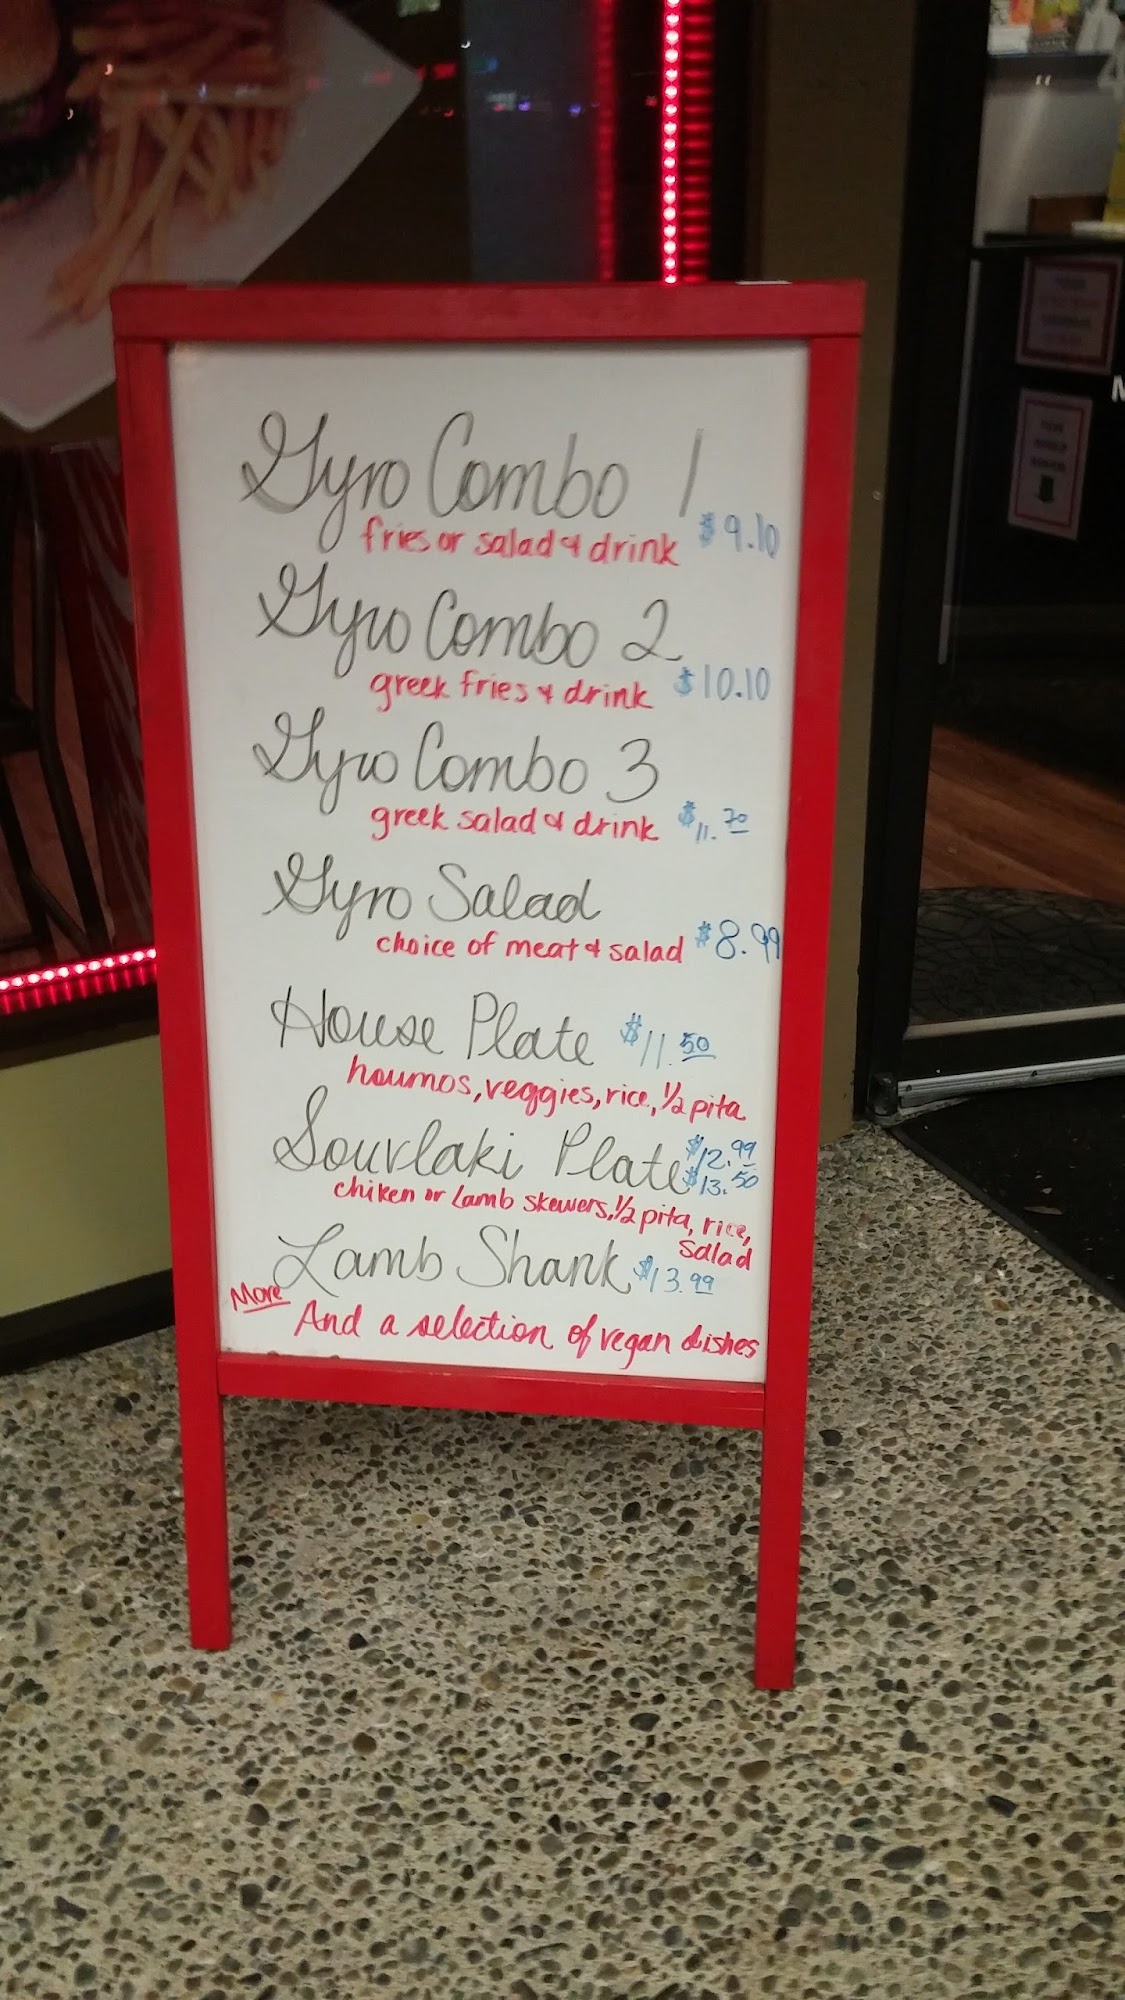 Gyro Combo 1
fries or salad & drink $9.10
Gyro Combo 2
greek fries & drink $10.10
Gyro Combo 3
greek salad & drink $11.70
Gyro Salad
choice of meat & salad $8.99
House Plate $11.50
houmos, veggies, rice, 1/2 pita
Souvlaki Plate $12.99
$13.50
chiken or Lamb skewers, 1/2 pita, rice,
salad
Lamb Shank $13.99
More
And a selection of vegan dishes